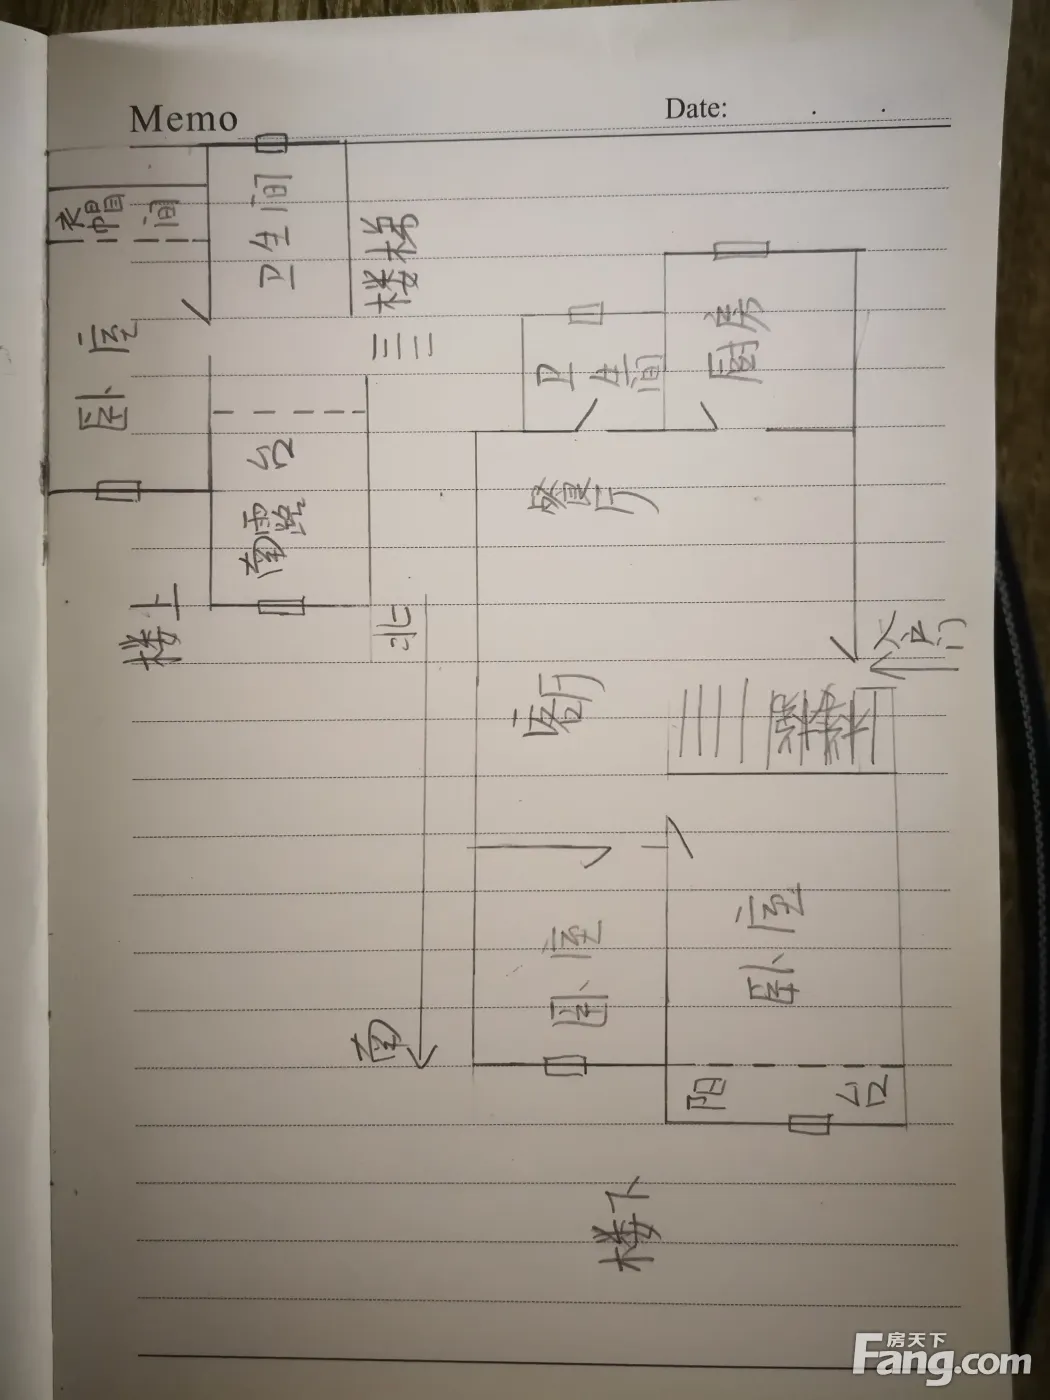 Memo
Date:
衣帽间
卫生间
楼梯
卧室
南露台
楼上
北
南
卫生间
厨房
餐厅
入户门
客厅
卧室
卧室
阳台
楼下
房天下
Fang.com